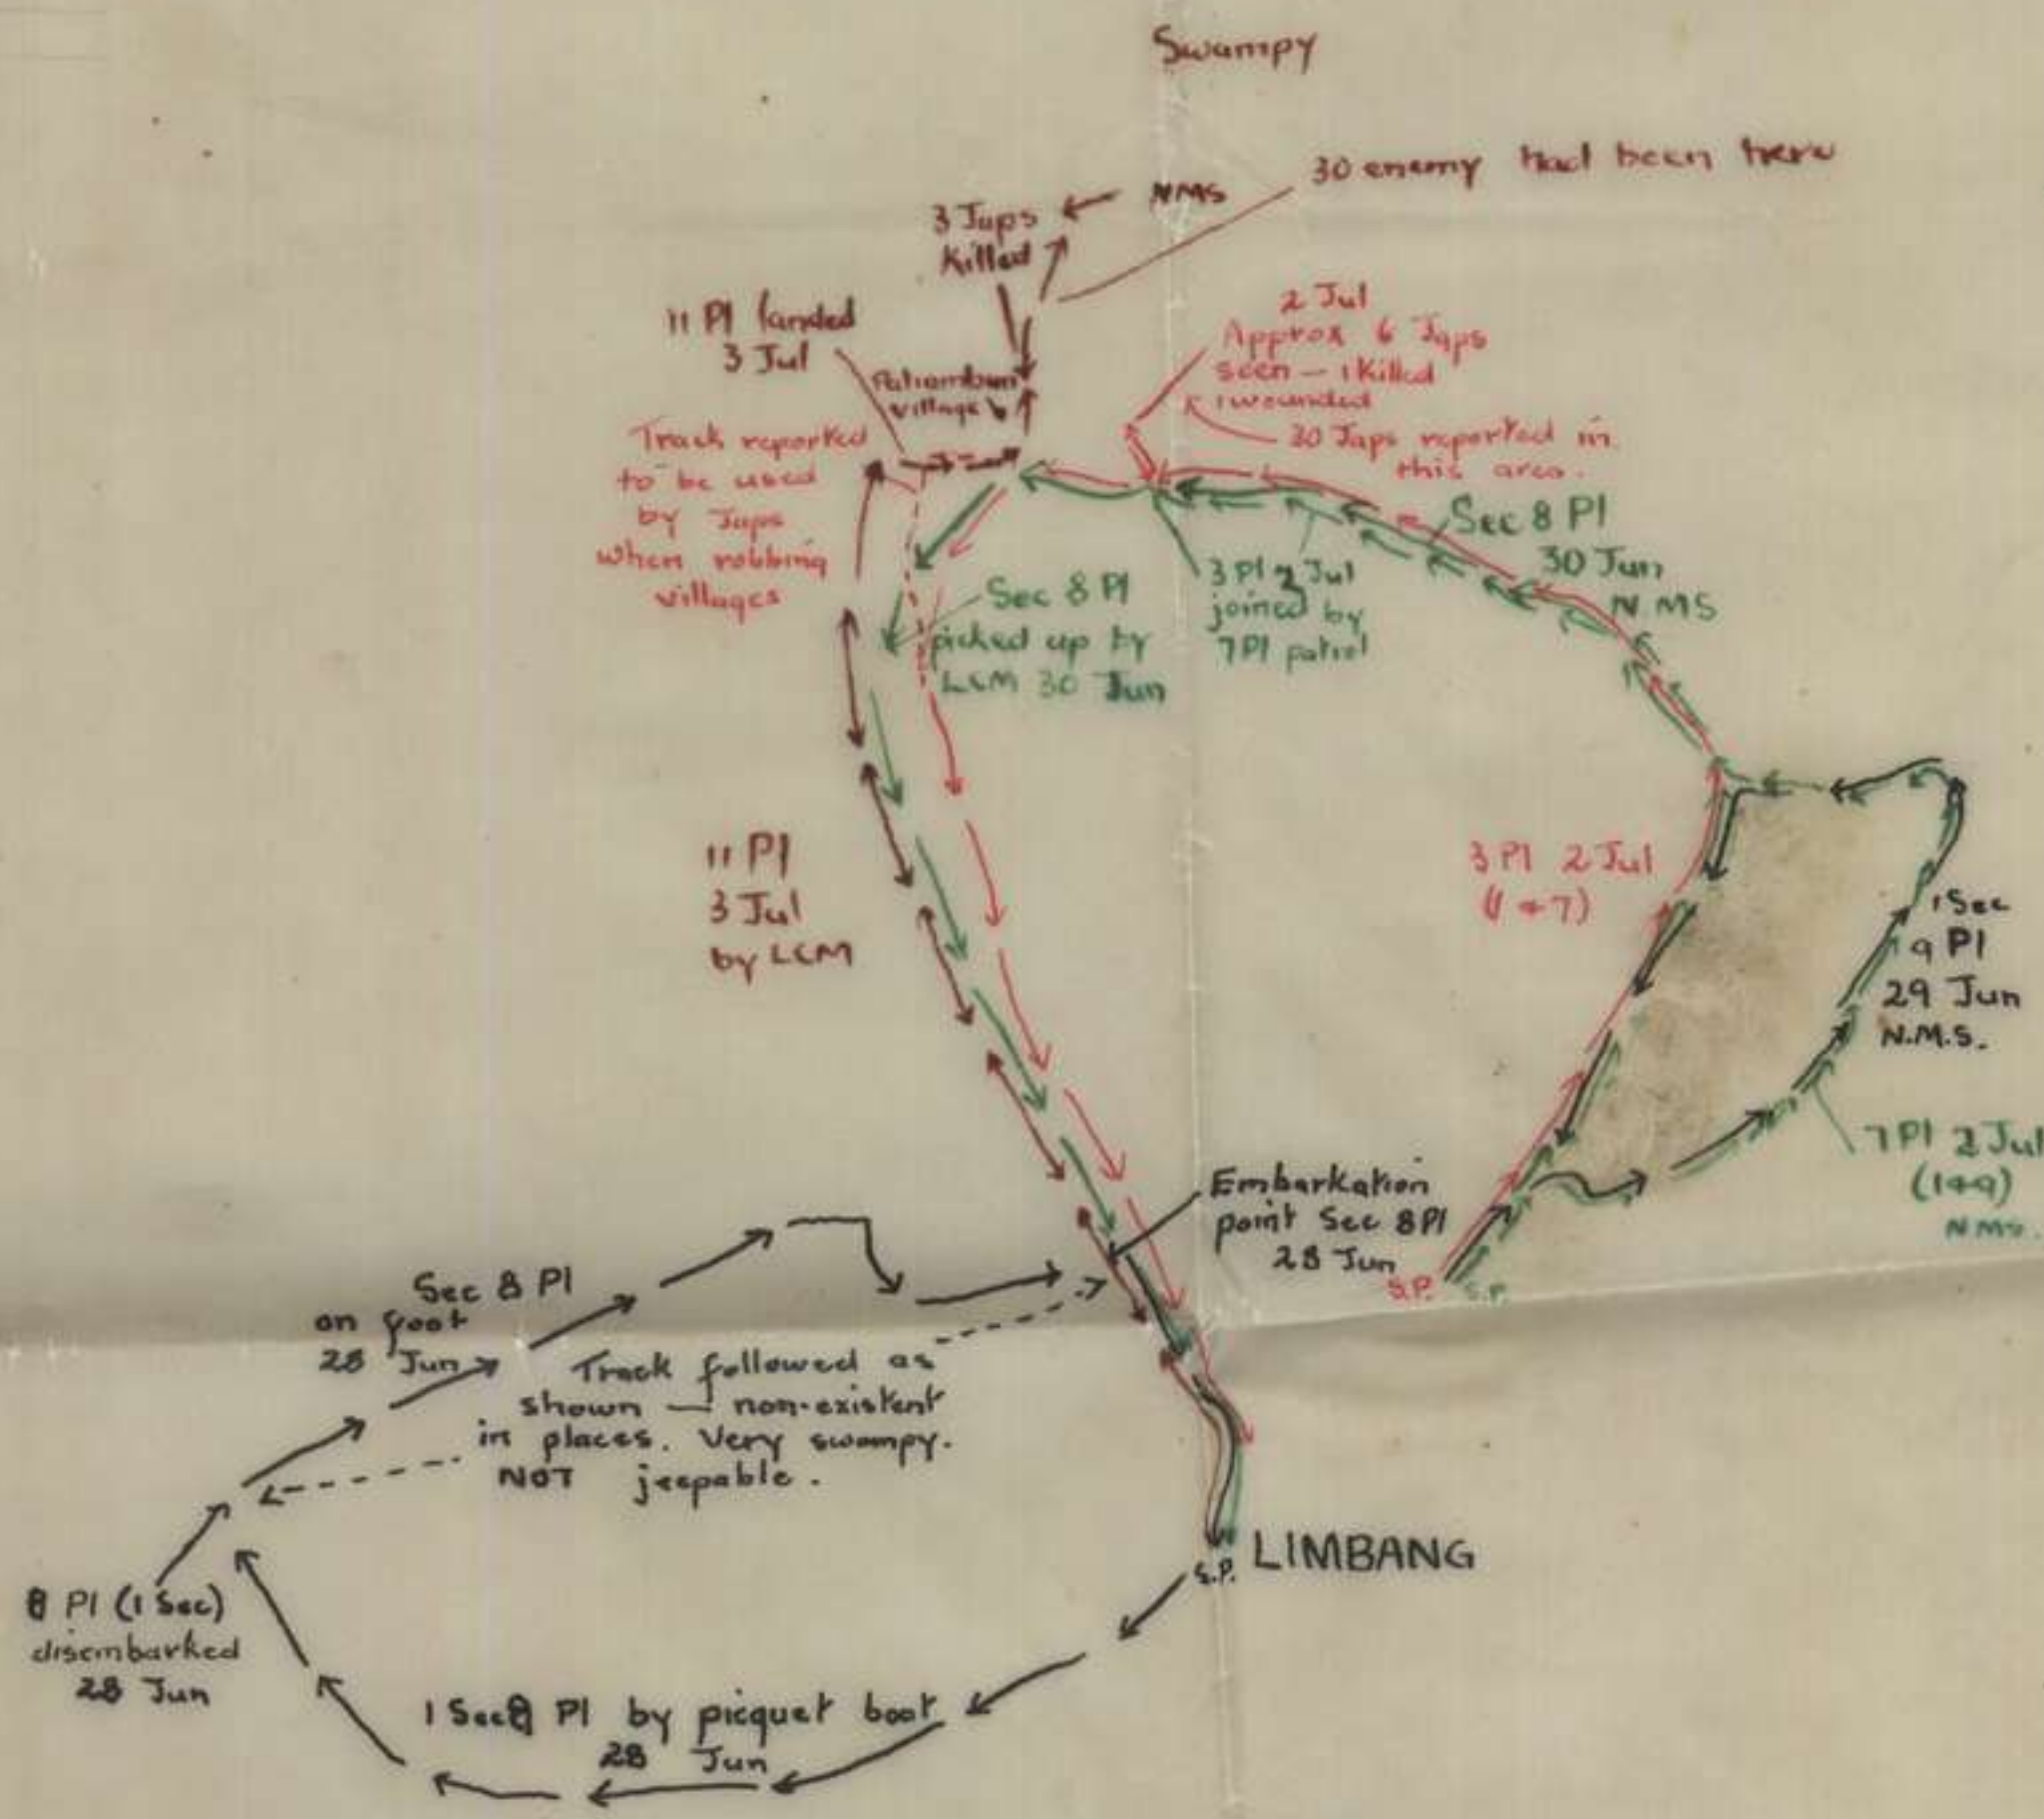 Swampy
30 enemy had been here
NMS
3 Japs
Killed
11 Pl landed
3 Jul
village
2 Jul
Approx 6 Japs
seen — 1 Killed
1 wounded
30 Japs reported in
this area.
Track reported
to be used
by Japs
when robbing
villages
Sec 8 Pl
30 Jun
NMS
3 Pl 2 Jul
joined by
7 Pl patrol
Sec 8 Pl
picked up by
LCM 30 Jun
11 Pl
3 Jul
by LCM
3 Pl 2 Jul
(1+7)
1 Sec
9 Pl
29 Jun
N.M.S.
7 Pl 2 Jul
(1+9)
NMS.
Embarkation
point Sec 8 Pl
28 Jun
S.P.
S.P.
Sec 8 Pl
on foot
28 Jun
Track followed as
shown — non-existent
in places. Very swampy.
NOT jeepable.
S.P. LIMBANG
8 Pl (1 Sec)
disembarked
28 Jun
1 Sec 8 Pl by picquet boat
28 Jun